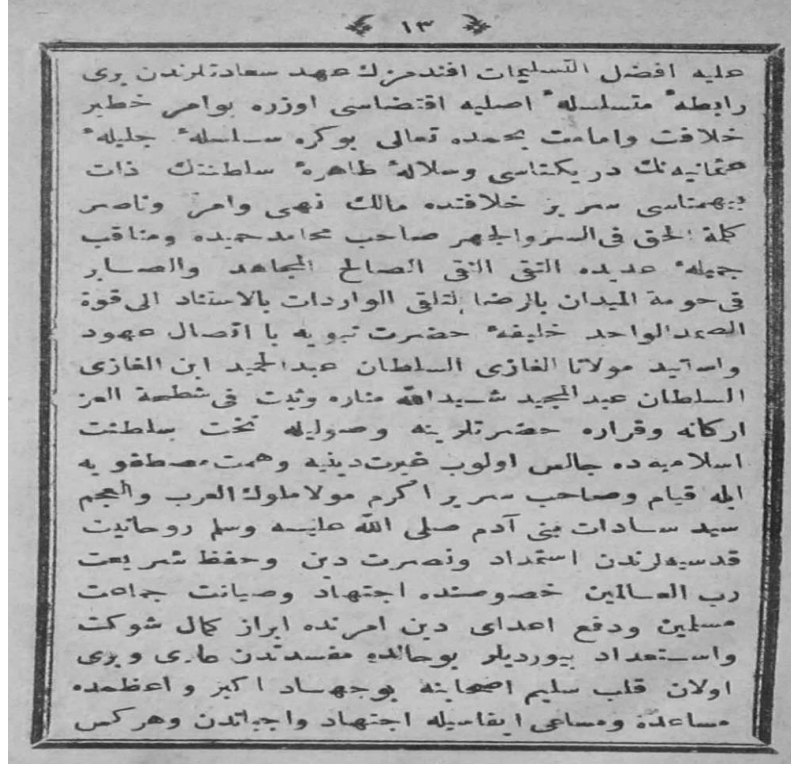 ١٣
عليه افضل التسليمات افندمزك عهد سعادتلرندن برى
رابطهٔ متسلسلهٔ اصليه اقتضاسى اوزره بو امر خطير
خلافت وامامت بحمده تعالى بوكره سلسلهٔ جليلهٔ
عثمانيه نك در يكتاسى وسلالهٔ طاهرهٔ سلطنتك ذات
بيهمتاسى سرير خلافتده مالك نهى وامر وناصر
كلمة الحق فى السر والجهر صاحب محامد حميده ومناقب
جميلهٔ عديده التقى النقى الصالح المجاهد والصابر
فى حومة الميدان بالرضا لتلقى الواردات بالاستناد الى قوة
الصمد الواحد خليفهٔ حضرت نبويه با اتصال عهود
واسانيد مولانا الغازى السلطان عبد الحميد ابن الغازى
السلطان عبد المجيد شيد الله مناره وثبت فى العز
اركانه وقراره حضرتلرينه وصوليله تخت سلطنت
اسلاميه ده جالس اولوب غيرت دينيه وهمت مصطفويه
ايله قيام وصاحب سرير اكرم مولا ملوك العرب والعجم
سيد سادات بنى آدم صلى الله عليه وسلم روحانيت
قدسيه لرندن استمداد ونصرت دين وحفظ شريعت
رب العالمين خصوصنده اجتهاد وصيانت جماعت
مسلمين ودفع اعداى دين امرنده ابراز كمال شوكت
واستعداد بيورديلر بو حالده مفسدتدن عارى وبرى
اولان قلب سليم اصحابنه بو جهاد اكبر واعظمده
مساعدة ومساعى ايفاسيله اجتهاد واجباتدن وهركس